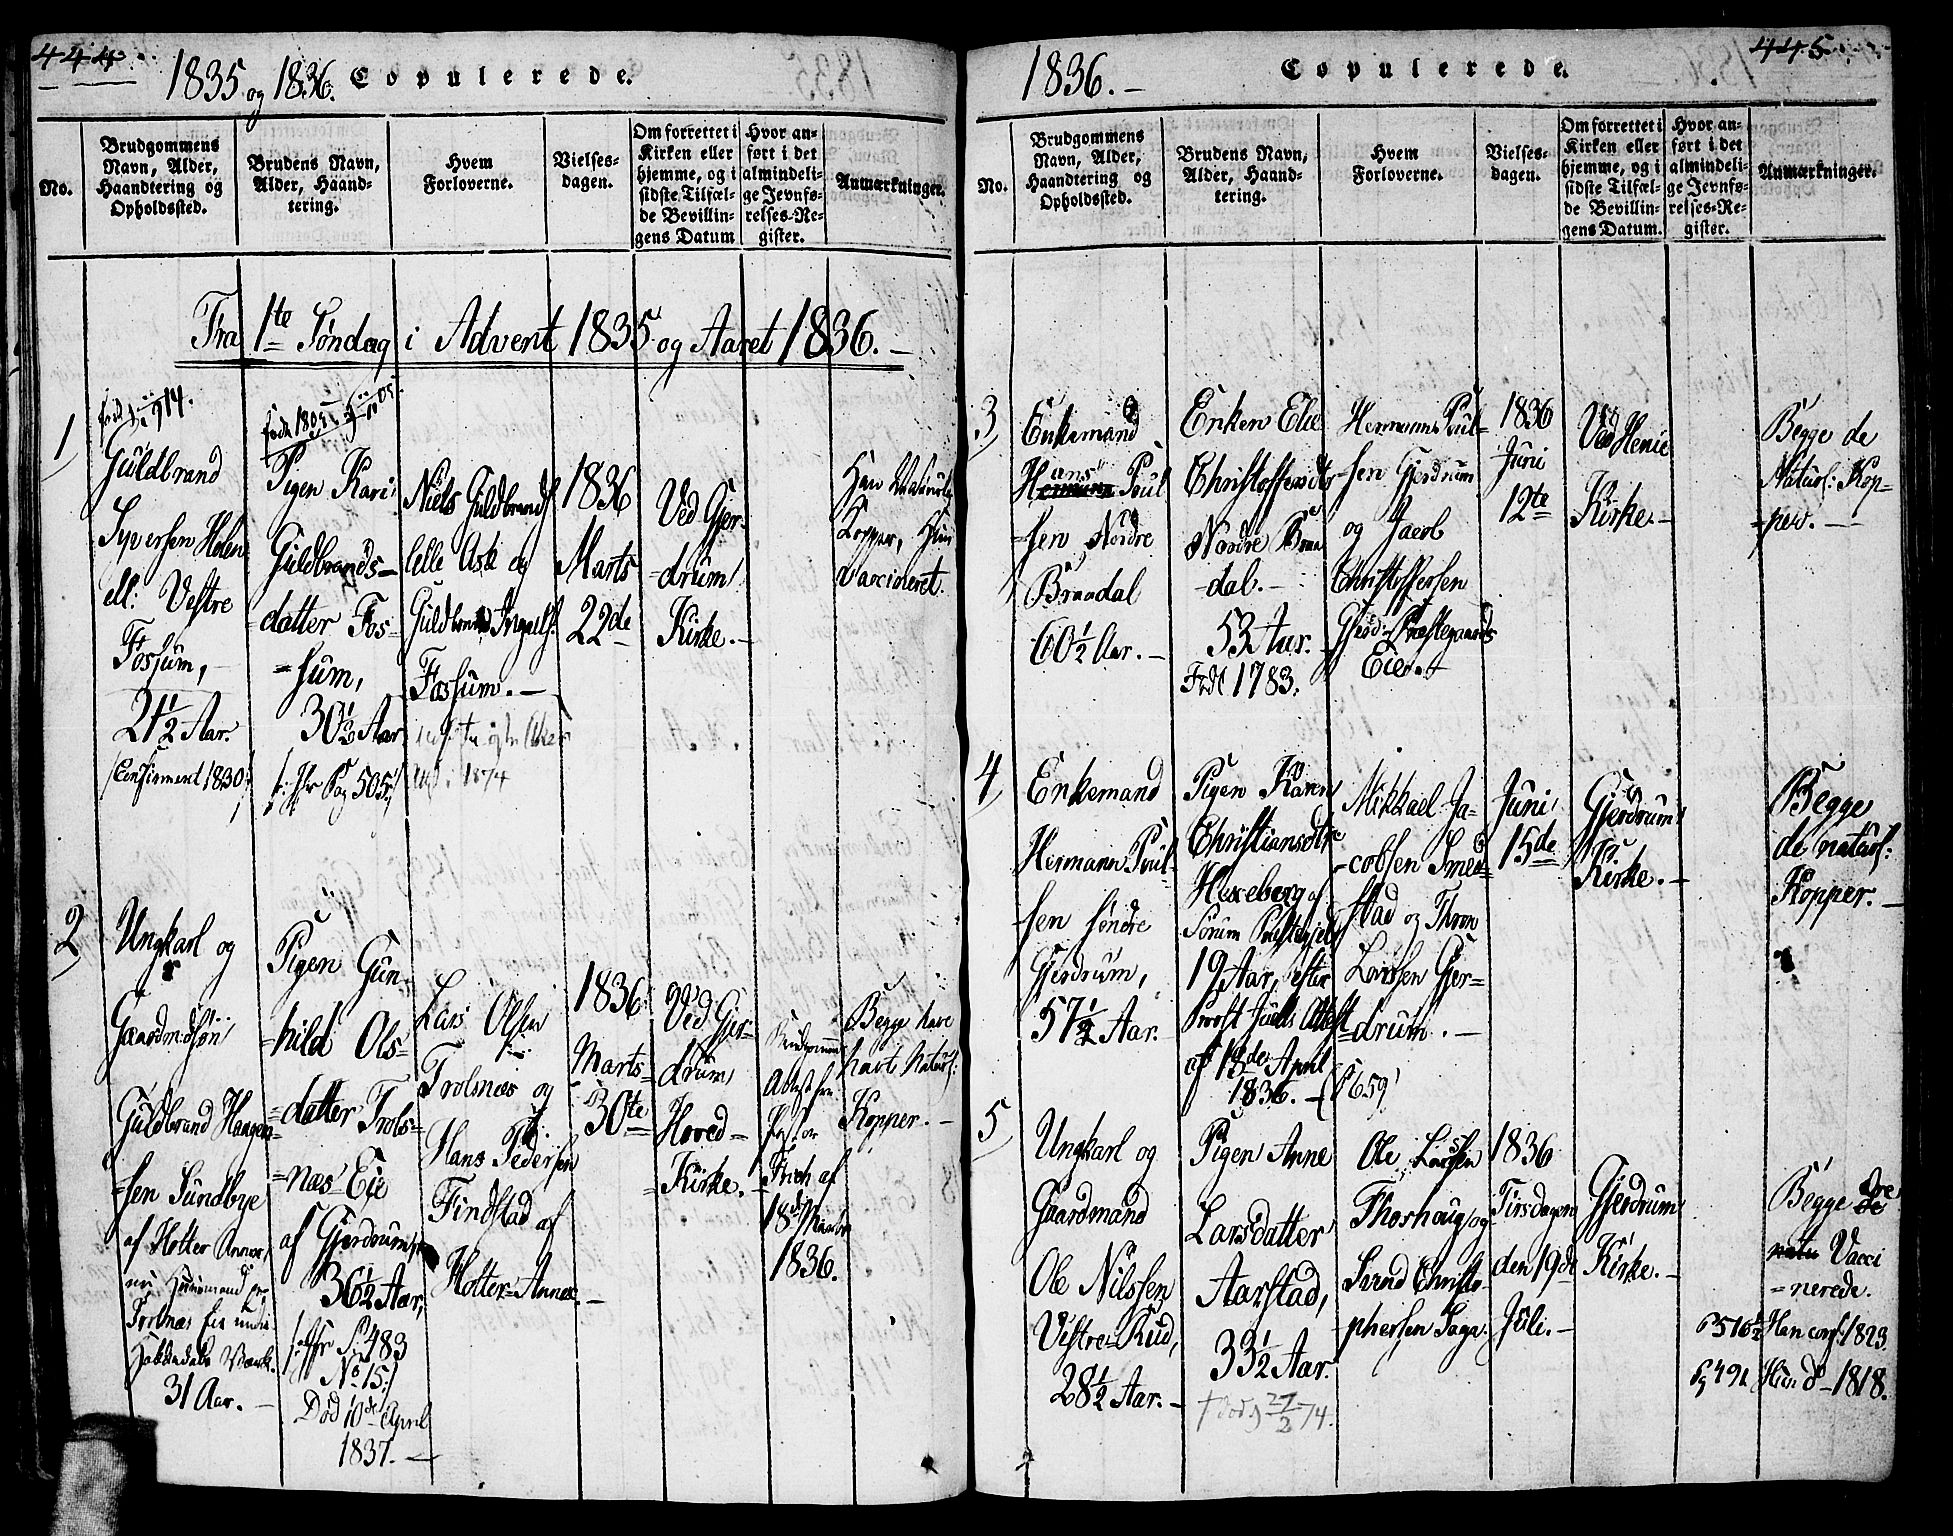 444
1835 og 1836. Copulerede.
No.
Brudgommens
Navn, Alder,
Haandtering og
Opholdssted.
Brudens Navn,
Alder, Haand-
tering.
Hvem
Forloverne.
Vielses-
dagen.
Om forrettet i
Kirken eller
hjemme, og i
sidste Tilfæl-
de Bevillin-
gens Datum
Hvor an-
ført i det
almindeli-
ge Jevnfø-
relses-Re-
gister.
Anmærkninger.
Fra 1te Søndag i Advent 1835 og Aaret 1836.
1
Guldbrand
Syversen Holen
ell: Vestre
Fossum,
21½ Aar.
/Confirmert 1830/
Pigen Kari
Guldbrands-
datter Fos-
sum,
30½ Aar
/: Pag 505:/
Niels Guldbrands
lille Ask og
Guldbrand Ingvels:
Fossum.
1874
1836
Marts
22de
Ved Gjer-
drum
Kirke.
Han
Kopper, Hun
vaccineret.
2
Ungkarl og
Gaardmdsøn
Guldbrand Haagen-
sen Sundbye
af Holter Annex,
nu Huusmand
Trolnæs Eie under
Værk.
31 Aar.
Pigen Gun-
hild Ols-
datter Trols-
næs Eie
af Gjerdrum,
36½ Aar,
P: 483
No 15:/
Død 10de April
1837.
Lars Olsen
Trolsnæs og
Hans Pedersen
Findstad af
Holter-Annex.
1836
Marts
30te
Ved Gjer-
drum
Hoved-
Kirke.
Attest fra
Pastor
af
18de
1836.
Begge have
havt Naturl:
Kopper.
445
1836.
Copulerede.
No.
Brudgommens
Navn, Alder,
Haandtering og
Opholdssted.
Brudens Navn,
Alder, Haand-
tering.
Hvem
Forloverne.
Vielses-
dagen.
Om forrettet i
Kirken eller
hjemme, og i
sidste Tilfæl-
de Bevillin-
gens Datum.
Hvor an-
ført i det
almindeli-
ge Jevnfø-
relses-Re-
gister.
Anmærkninger.
3
Enkemand
Hans Poul
sen Nordre
Braadal
60½ Aar.
Enken Elie
Christoffersdtr
Nordre Braa
dal.
53 Aar.
Født 1783.
Hermann Poul-
sen Gjerdrum
og Jacob
Christoffersen
Gjerd: Præstegaards
Eie.
1836
Juni
12te
Ved Henie
Kirke.
Begge de
Naturl: Kop-
per.
4
Enkemand
Hermann Poul-
sen søndre
Gjerdrum,
57½ Aar.
Pigen Karen
Christiansdtr
Hexeberg af
Sørum Præstegjeld
19 Aar, efter
Provst Juells Attest
af 13de April
1836. (P 659)
Mikkael Ja-
cobsen Smed-
stad og Thron
Larssen Gjer-
drum.
Juni
15de
Gjerdrum
Kirke.
Begge
de naturl:
Kopper.
5
Ungkarl og
Gaardmand
Ole Nilssen
Vestre-Rud,
28½ Aar.
Pigen Anne
Larsdatter
Aarstad,
33½ Aar.
† død 27/2 74.
Ole Larssen
Thorshaug og
Svend Christo-
phersen Saga.
1836
Tirsdagen
den 19de
Juli.
Gjerdrum
Kirke.
Begge de
natu Vacci
nerede.
Han conf: 1823.
Hun d – 1818.